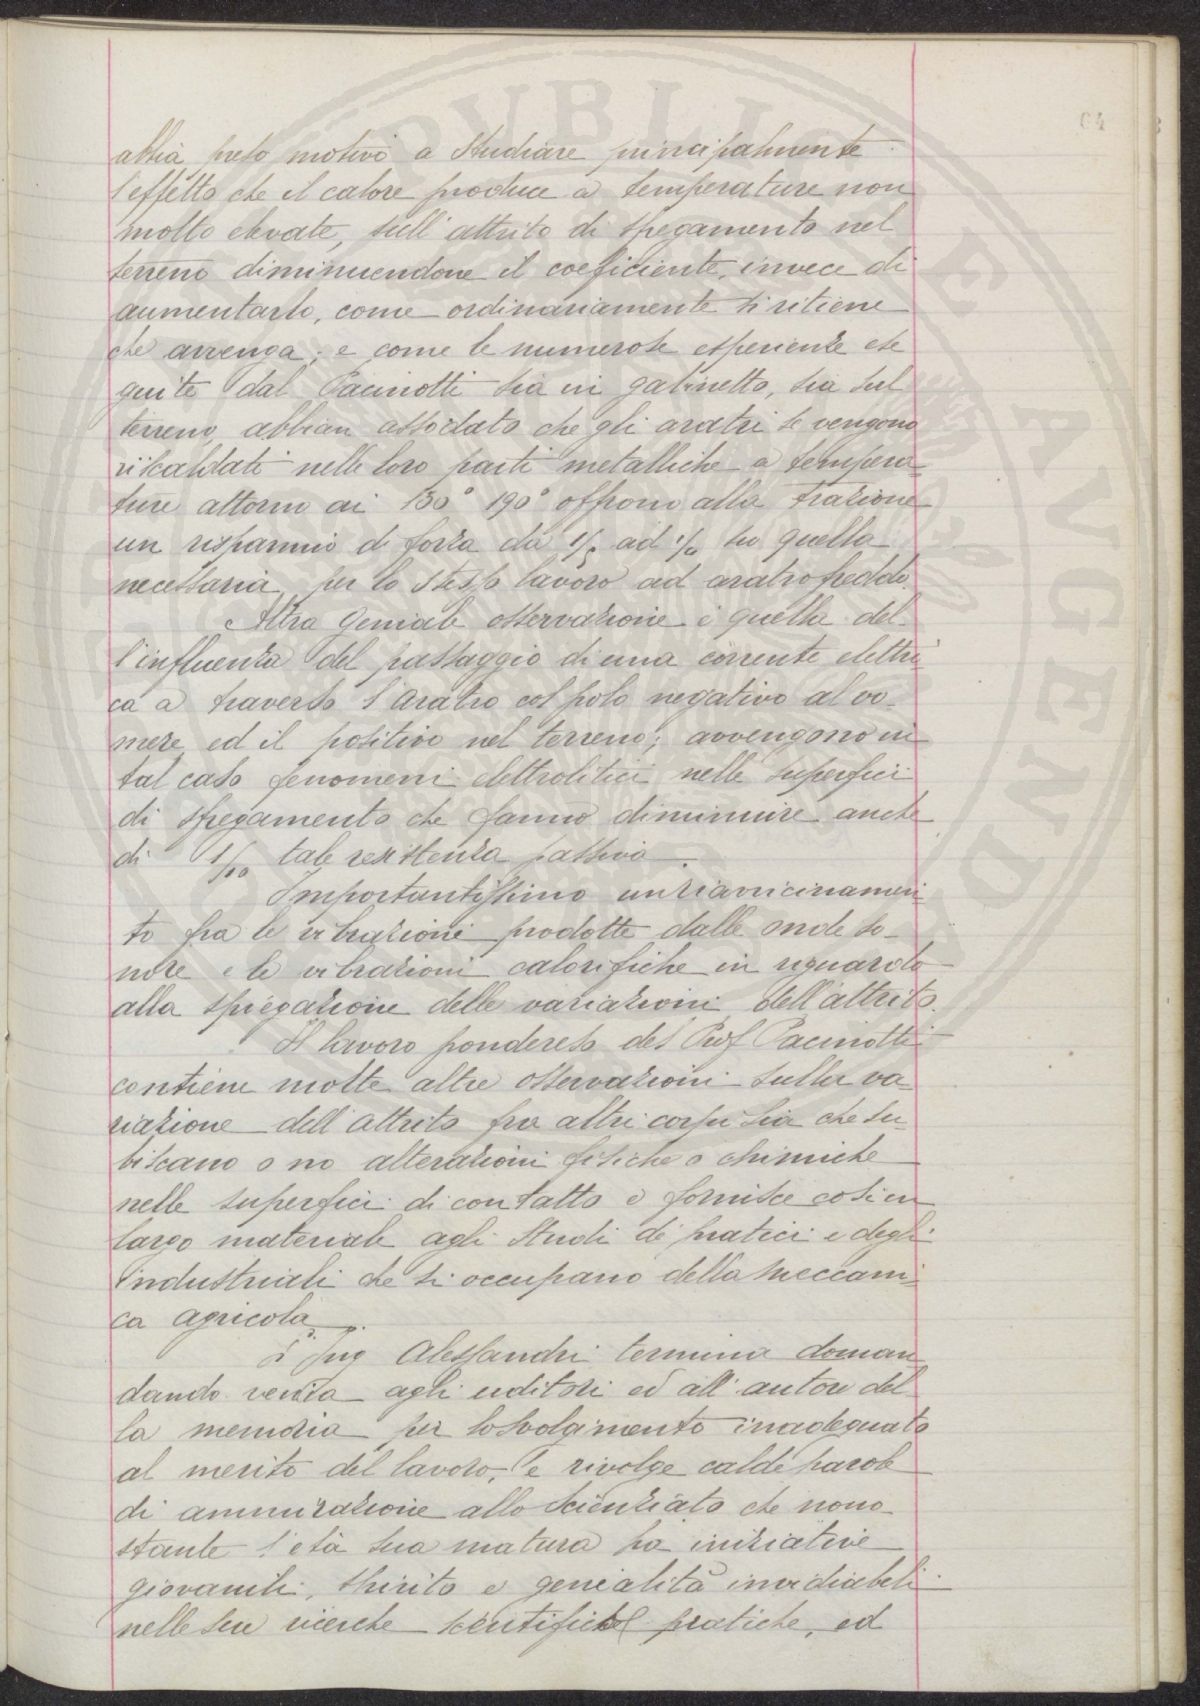 64
abbia preso motivo a studiare principalmente
l'effetto che il calore produce a temperature non
molto elevate, sull'attrito di spegamento nel
terreno diminuendone il coeficiente, invece di
aumentarlo, come ordinariamente si ritiene
che avvenga; e come le numerose esperienze ese
guite dal Pacinotti sia in gabinetto, sia sul
terreno, abbian assodato che gli aratri se vengono
riscaldati nelle loro parti metalliche a tempera-
ture attorno ai 150° 190° offrono alla trazione
un risparmio di forza da ad su quella
necessaria per lo stesso lavoro ad aratro freddo.
Altra geniale osservazione è quella del-
l'influenza del passaggio di una corrente elettri-
ca a traverso l'aratro col polo negativo al vo-
mere ed il positivo nel terreno; avvengono in
tal caso fenomeni elettrolitici nelle superfici
di spegamento che fanno diminuire anche
di 1/10 tale resistenza passiva.
Importantissimo un riavvicinamen
to fra le vibrazioni prodotte dalle onde so-
nore e le vibrazioni calorifiche in riguardo
alla spiegazione delle variazioni dell'attrito.
Il lavoro ponderoso del Prof Pacinotti
contiene molte altre osservazioni sulla va-
riazione dell'attrito fra altri corpi sia che su-
biscano o no alterazioni fisiche o chimiche
nelle superfici di contatto e fornisce così un
largo materiale agli studi de' pratici e degli
industriali che si occupano della meccani-
ca agricola.
L'Ing Alessandri termina doman
dando venia agli uditori ed all'autore del
la memoria per lo svolgimento inadeguato
al merito del lavoro, e rivolge calde parole
di ammirazione allo scienziato che nono-
stante l'età sua matura ha iniziative
giovanili, spirito e genialità invidiabili
nelle sue ricerche scientifiche pratiche, ed
PVBLICE AVGENDA